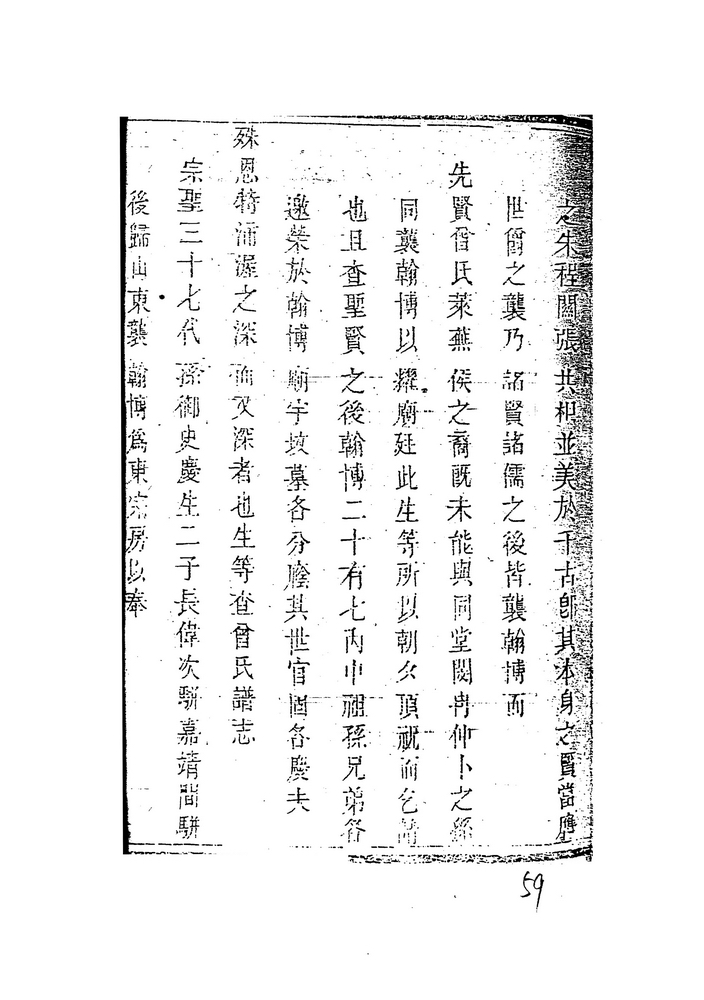 之朱程關張共相並美於千古卽其本身之賢當膺
世爵之襲乃諸賢諸儒之後皆襲翰博而
先賢曾氏萊蕪侯之裔旣未能與同堂閔冉仲卜之孫
同襲翰博以耀廟廷此生等所以朝夕頂祝而乞請
也且查聖賢之後翰博二十有七內中祖孫兄弟各
邀榮於翰博廟宇坟墓各分廕其世官固各慶夫
殊恩特沛渥之深而又深者也生等查曾氏譜志
宗聖三十七代孫御史慶生二子長偉次駢嘉靖間駢
後歸山東襲翰博爲東宗房以奉
59